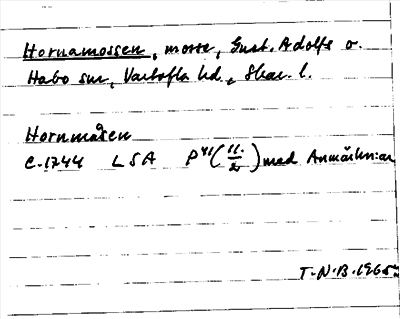 Hornamossen, mosse, Gust. Adolfs o.
Habo snr, Vartofta hd., Skar. l.
Hornmåsen
c. 1744 LSA P41 (11./2) med Anmärkn:ar
T.N.B. 1965